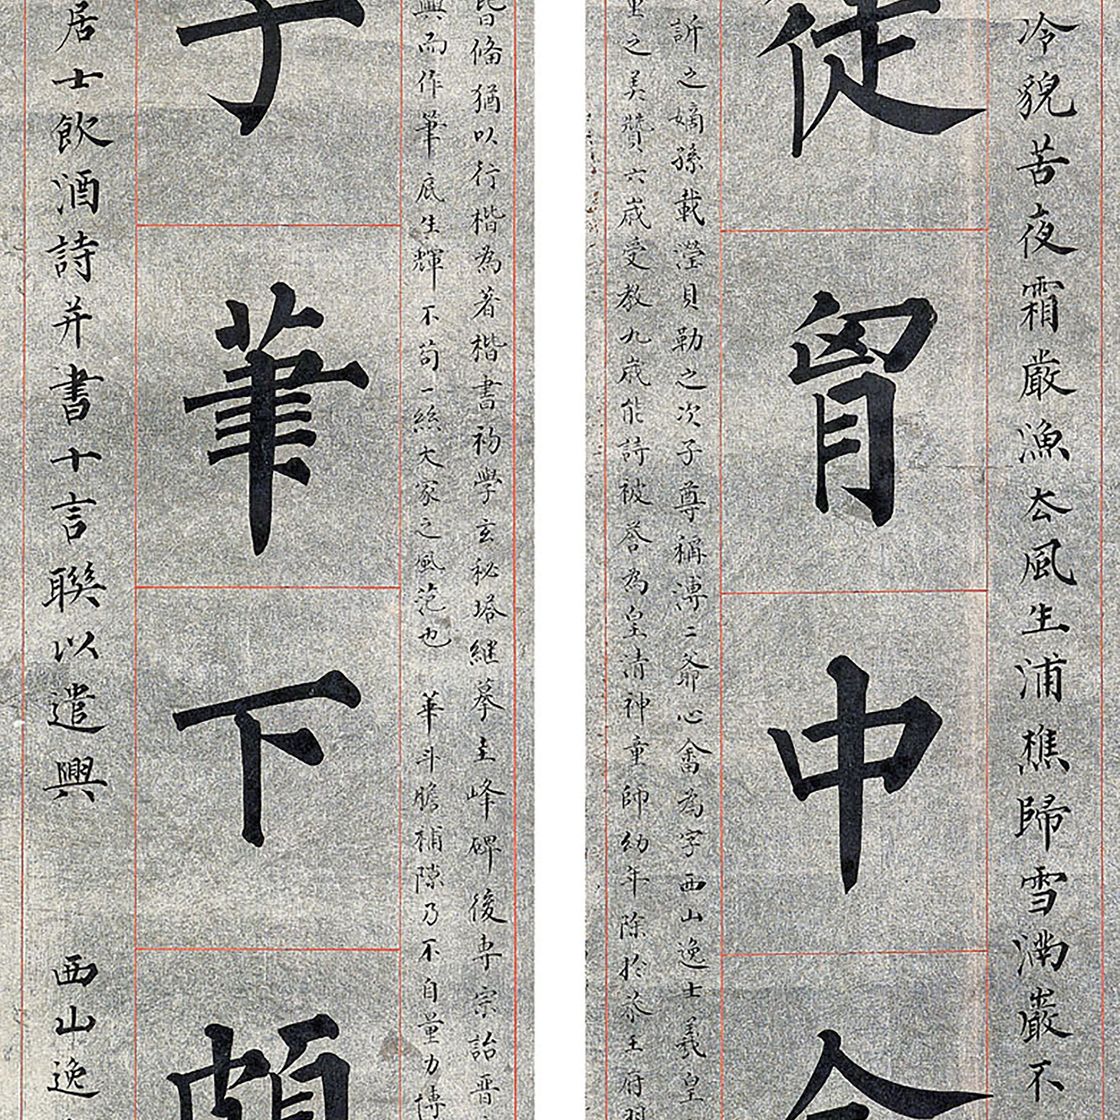 冷貎苦夜霜嚴漁厺風生浦樵歸雪滿巖不
徒胷中
訢之嫡孫載瀅貝勒之次子尊稱溥二爺心畬為字西山逸士羲皇
重之美贊六歲受教九歲能詩被誉為皇清神童師幼年除於恭王府習
皆脩猶以行楷為著楷書初學玄秘塔繼摹圭峰碑後專宗詒晋
興而作筆底生輝不苟一絲大家之風范也 華斗膽補隙乃不自量力博
子筆下頗
居士飲酒詩并書十言聯以遣興 西山逸